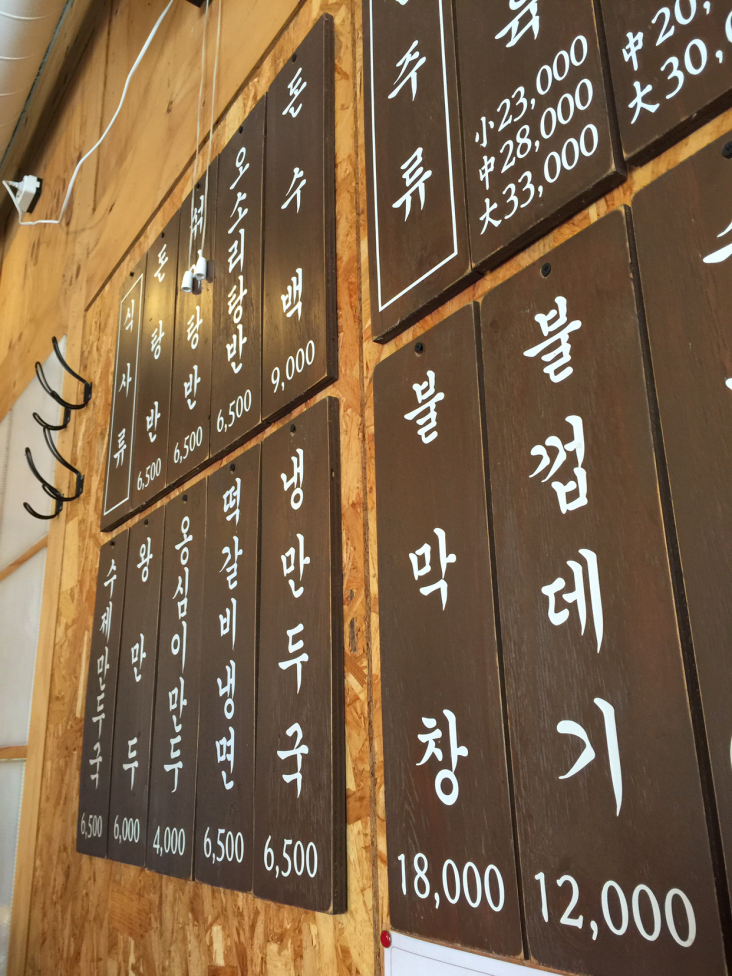 식사류
돈탕반
6,500
섞탕반
6,500
오소리탕반
6,500
돈수백
9,000
수제만두국
6,500
왕만두
6,000
옹심이만두
4,000
떡갈비냉면
6,500
냉만두국
6,500
주류
小23,000
中28,000
大33,000
中20,
大30,
불막창
18,000
불껍데기
12,000